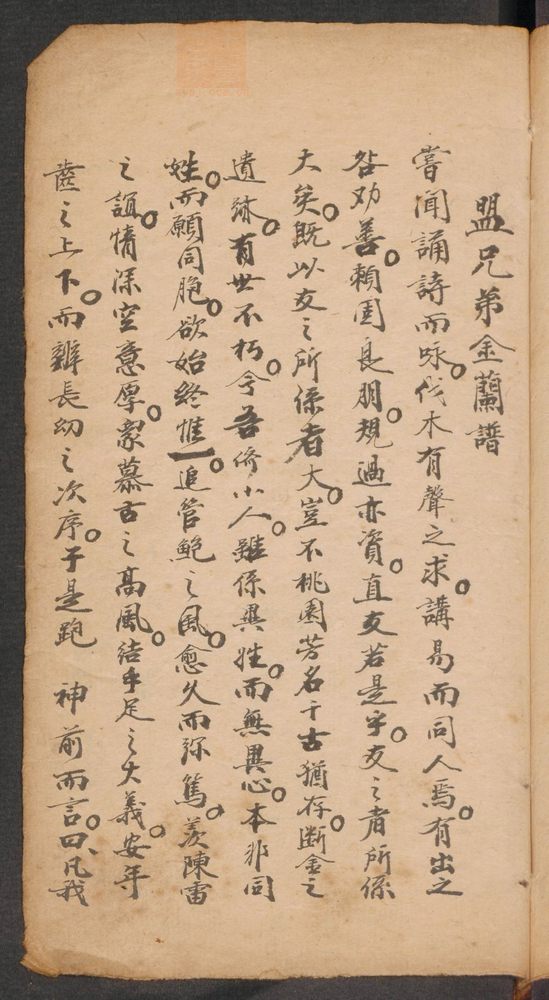 盟兄弟金蘭譜
嘗聞誦詩而咏。伐木有聲之求。講易而同人焉。有出之
咎劝善。賴周良朋。規過亦資。直友若是乎。友之者所係
大矣。既以友之所係者大。豈不桃園芳名千古猶存。斷金之
遺跡。有世不朽。今吾儕小人。雖係異姓。而無異心。本非同
姓。而願同胞。欲始終惟一。追管鮑之風。愈久而弥篤。羨陳雷
之誼。情深空意厚。衆慕古之高風。結手足之大義。安年
齒之上下。而辦長幼之次序。于是跑 神前而言。曰、凡我